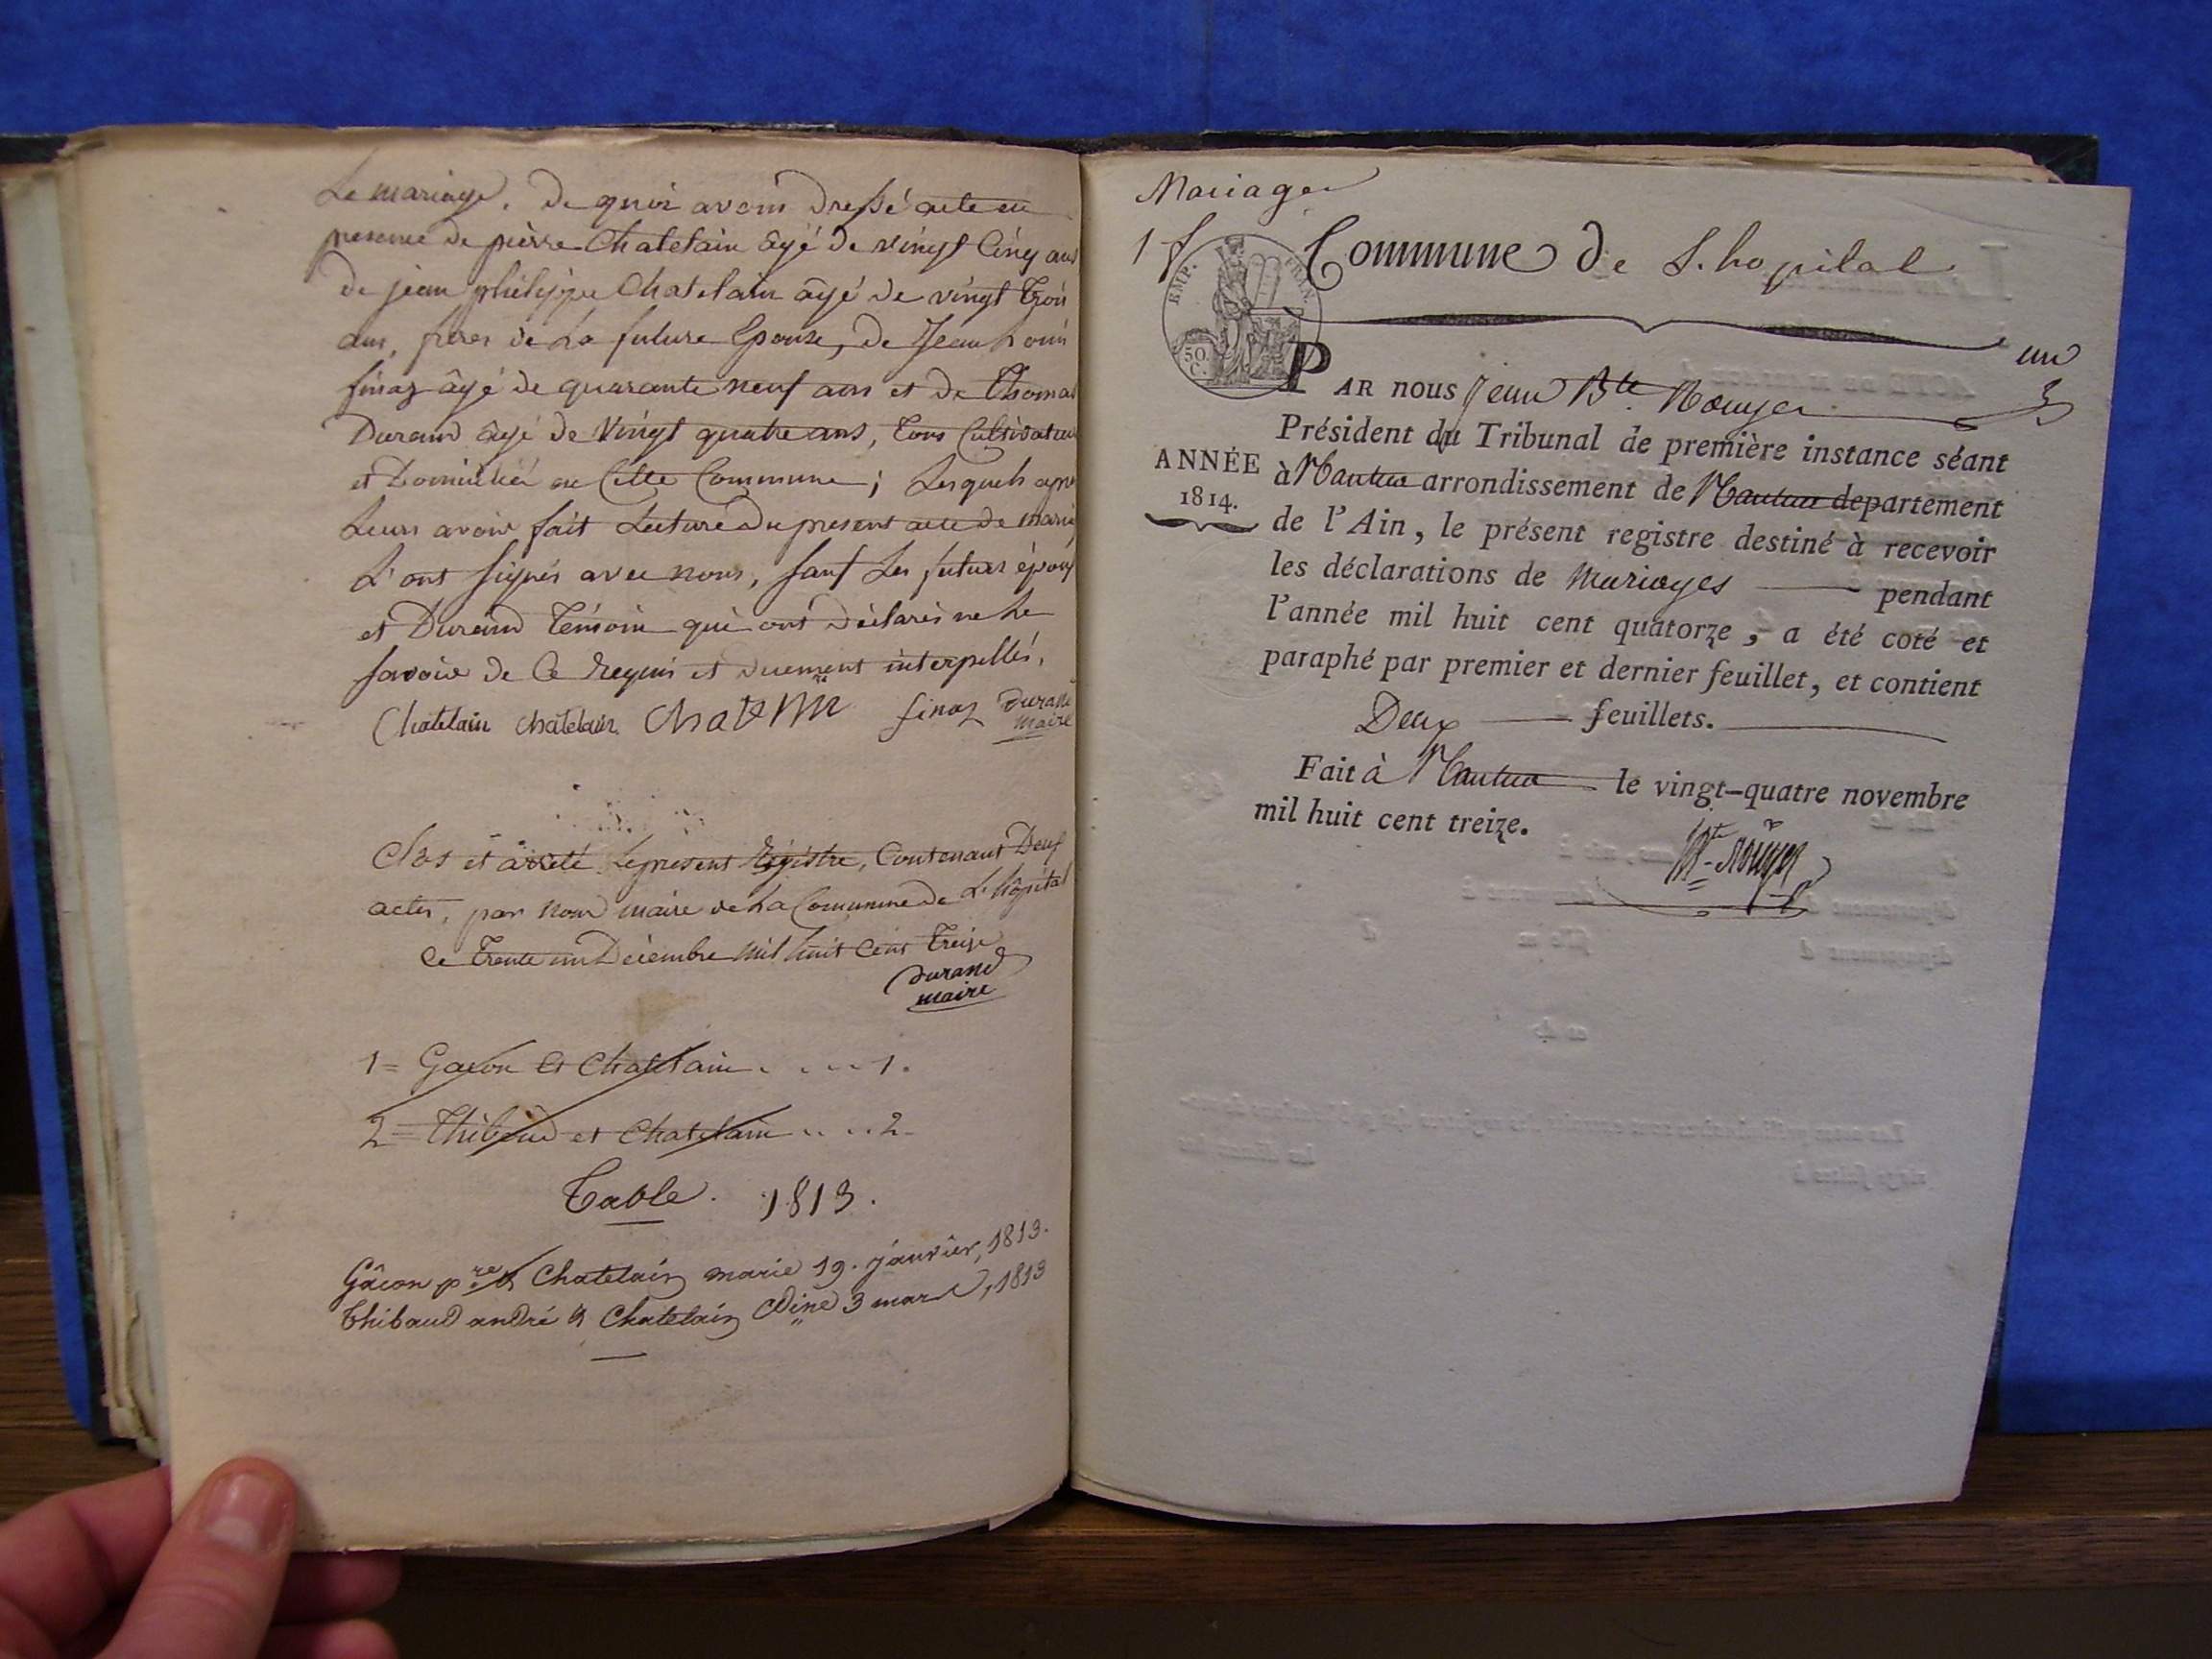 Le mariage. De quoi avons Dressé acte en
presence de pierre Chatelain âgé de vingt Cinq ans
De jean philippe Chatelain âgé de vingt trois
ans, freres de La future Epouse, De Jean Louis
finaz âgé de quarante neuf ans et de Thomas
Durand âgé de Vingt quatre ans, tous Cultivateurs
et Domiciliés en Cette Commune; Lesquels apre
Leurs avoir fait Lecture du present acte de maria
L'ont signés avec nous, sauf Les futurs épous
et Durand témoin qui ont Déclarés ne Le
savoir de Ce Requis et duement interpellés.
Chatelain chatelain Chatelain finaz Durand
maire
Clos et arreté Le present Régistre, Contenant Deux
actes, par nous maire de La Commune de L'hôpital
Ce trente un Décembre mil huit Cent treize
Durand
maire
1= Gacon et Chatelain . . . . 1.
2= Thibaud et Chatelain . . . . 2.
Table. 1813.
Gâcon p.re & Chatelain marie 19. janvier, 1813.
Thibaud andré & Chatelain Cdine 3 mars, 1813
Mariages
1 f
Commune De L'hopital
EMP. FRAN.
50. C.
un
PAR nous Jean Bte. Rouyer
Président du Tribunal de première instance séant
ANNÉE
1814.
à Nantua arrondissement de Nantua departement
de l'Ain, le présent registre destiné à recevoir
les déclarations de Mariages pendant
l'année mil huit cent quatorze, a été coté et
paraphé par premier et dernier feuillet, et contient
Deux feuillets.
Fait à Nantua le vingt-quatre novembre
mil huit cent treize.